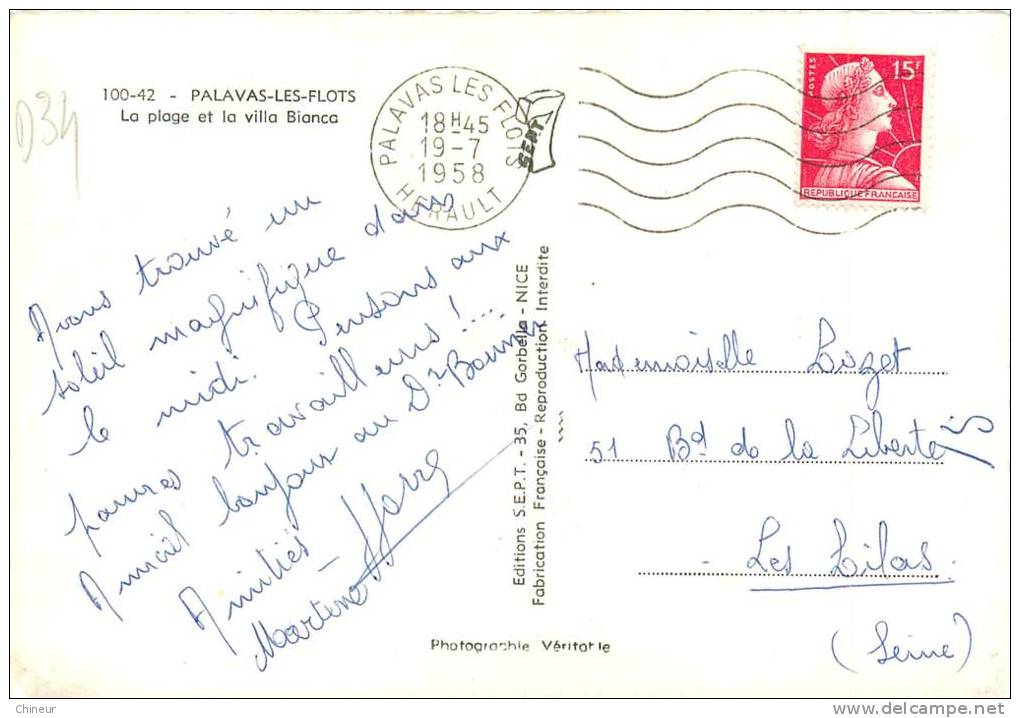 100-42 - PALAVAS-LES-FLOTS
La plage et la villa Bianca
D34
PALAVAS LES FLOTS
18H45
19-7
1958
HERAULT
SEPT
POSTES
15F
REPUBLIQUE FRANCAISE
Avons trouvé un
soleil magnifique dans
le midi. Pensons aux
pauvres travailleurs!....
Amical bonjour au Dr
Amitiés -
Editions S.E.P.T. - 35, Bd Gorbella - NICE
Fabrication Française - Reproduction Interdite
Mademoiselle Lozet
51 Bd de la Liberté
- Les Lilas.
(Seine)
Photographie Véritable
Chineur
delcampe.net